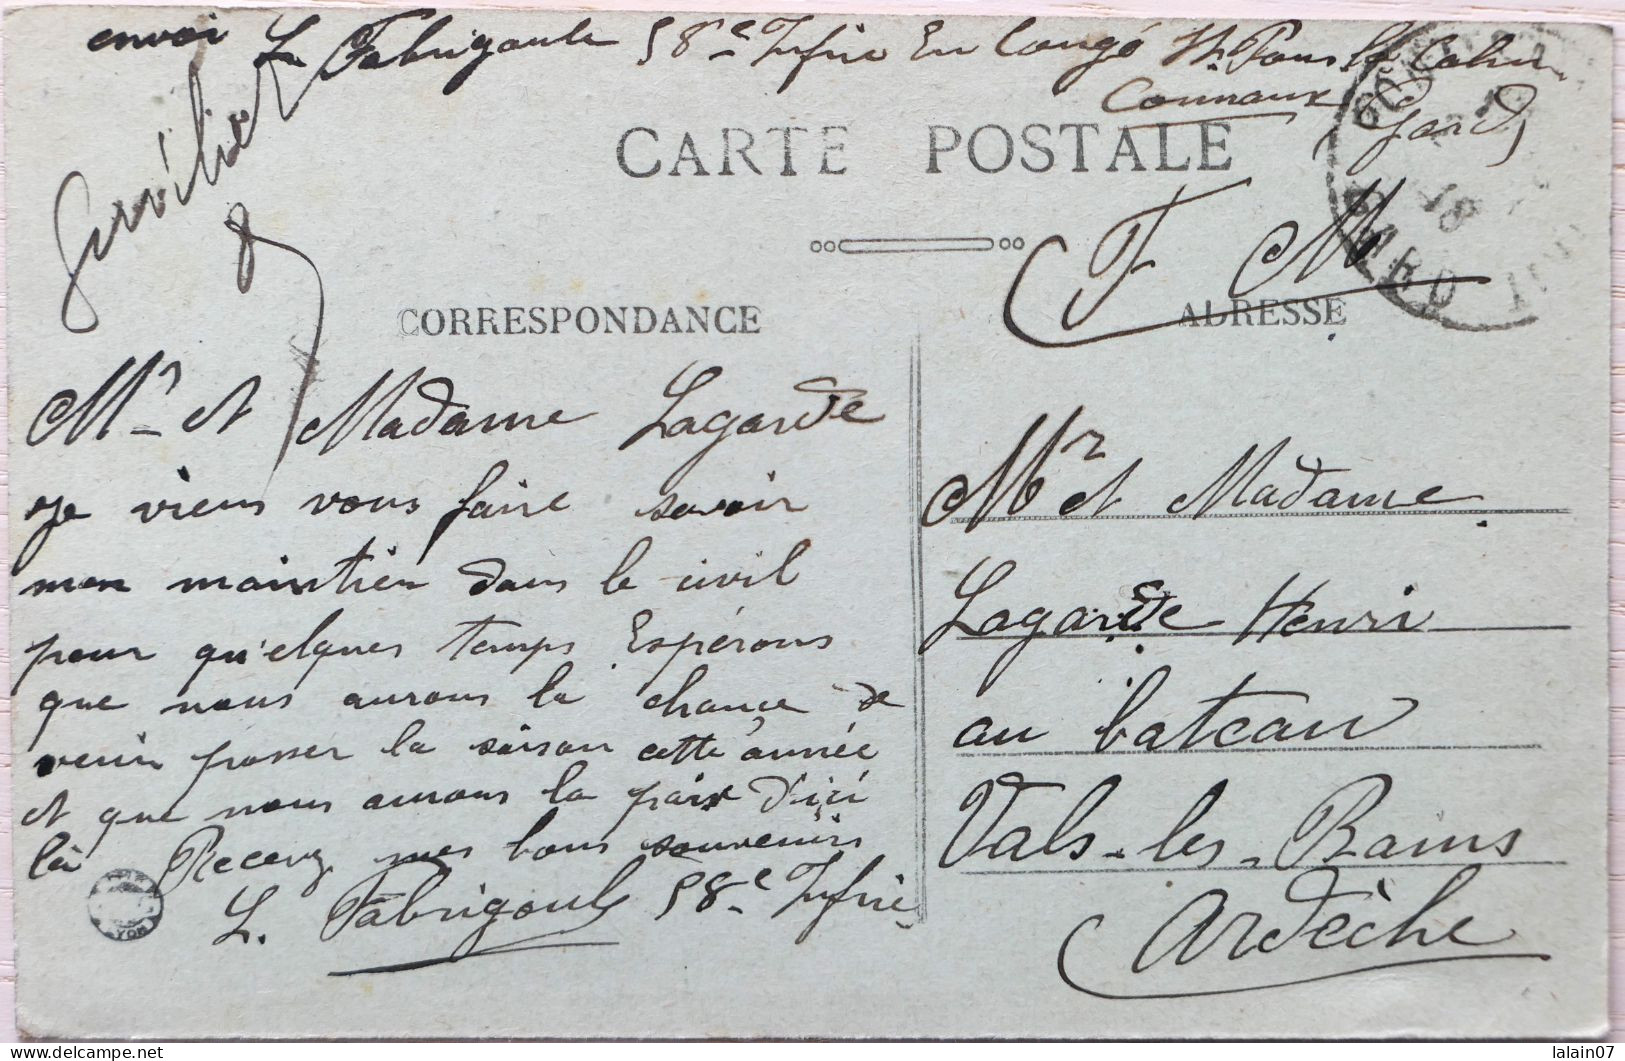 envoi L. Fabrigoule 58e Infrie En Congé St. Pons la Calm
Connaux Gard
CARTE POSTALE
F M
18
GARD
CORRESPONDANCE
ADRESSE
Mr et Madame Lagarde
Je viens vous faire savoir
mon maintien dans le civil
pour qu'elques temps Espérons
que nous aurons la chance de
venir passer la saison cette année
et que nous aurons la paix d'ici
là Recevez mes bons souvenirs
L. Fabrigoule 58e Infrie
Mr et Madame
Lagarde Henri
au bateau
Vals-les-Bains
Ardèche
lalain07